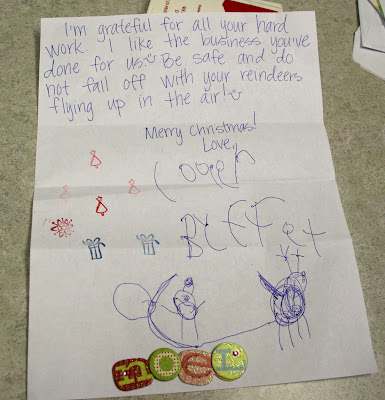 I'm grateful for all your hard
work. I like the business you've
done for us. Be safe and do
not fall off with your reindeers
flying up in the air!
Merry Christmas!
Love,
Cooper
noel